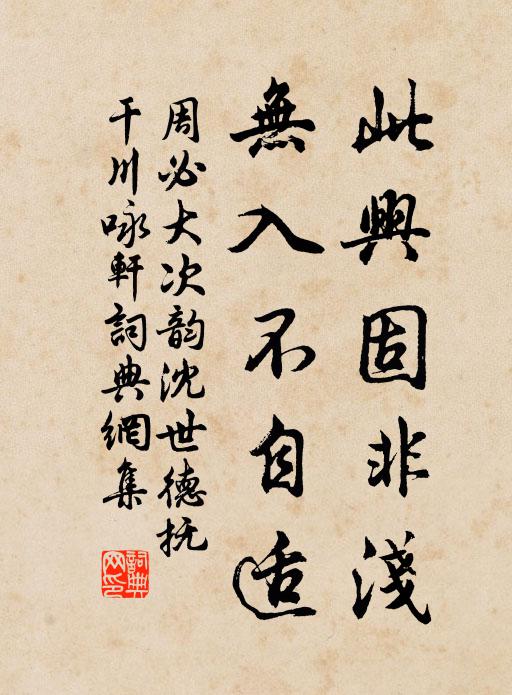 此興固非淺
無入不自适
周必大次韵沈世德抚
干川咏軒詞典網集
詞典网印